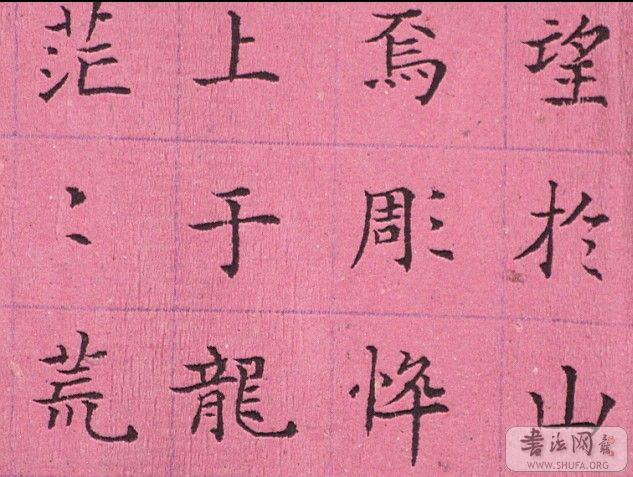 望於山
焉彫忰
上于龍
茫〻荒
书法网
WWW.SHUFA.ORG